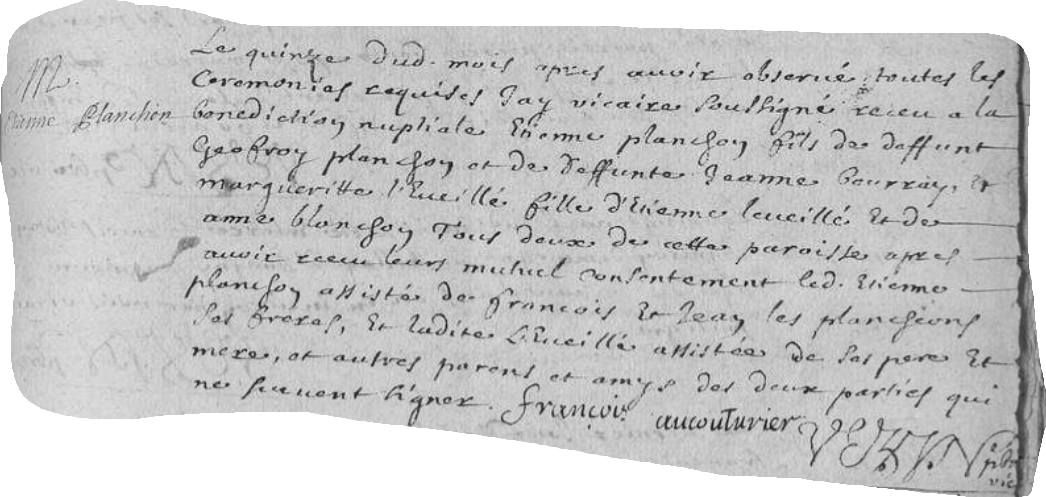 M.
Etienne Planchon
Le quinze dud. mois apres avoir observé toutes les
Ceremonies requises Jay vicaire soussigné receu a la
benediction nuptiale Etienne planchon fils de deffunt
Geofroy planchon et de deffunte Jeanne bourray, Et
margueritte l'Eveillé fille d'Etienne leveillé Et de
anne blanchon Tous deux de cette paroisse apres
avoir receu leurs mutuel consentement led. Etienne
planchon assisté de francois Et Jean les planchons
ses freres, Et ladite L'Eveillé assistée de ses pere Et
mere, et autres parens et amys des deux parties qui
ne scavent signer. françois aucouturier
vic